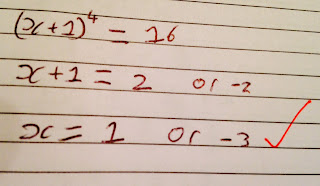 (x+1)⁴ = 16
x+1 = 2 or -2
x = 1 or -3